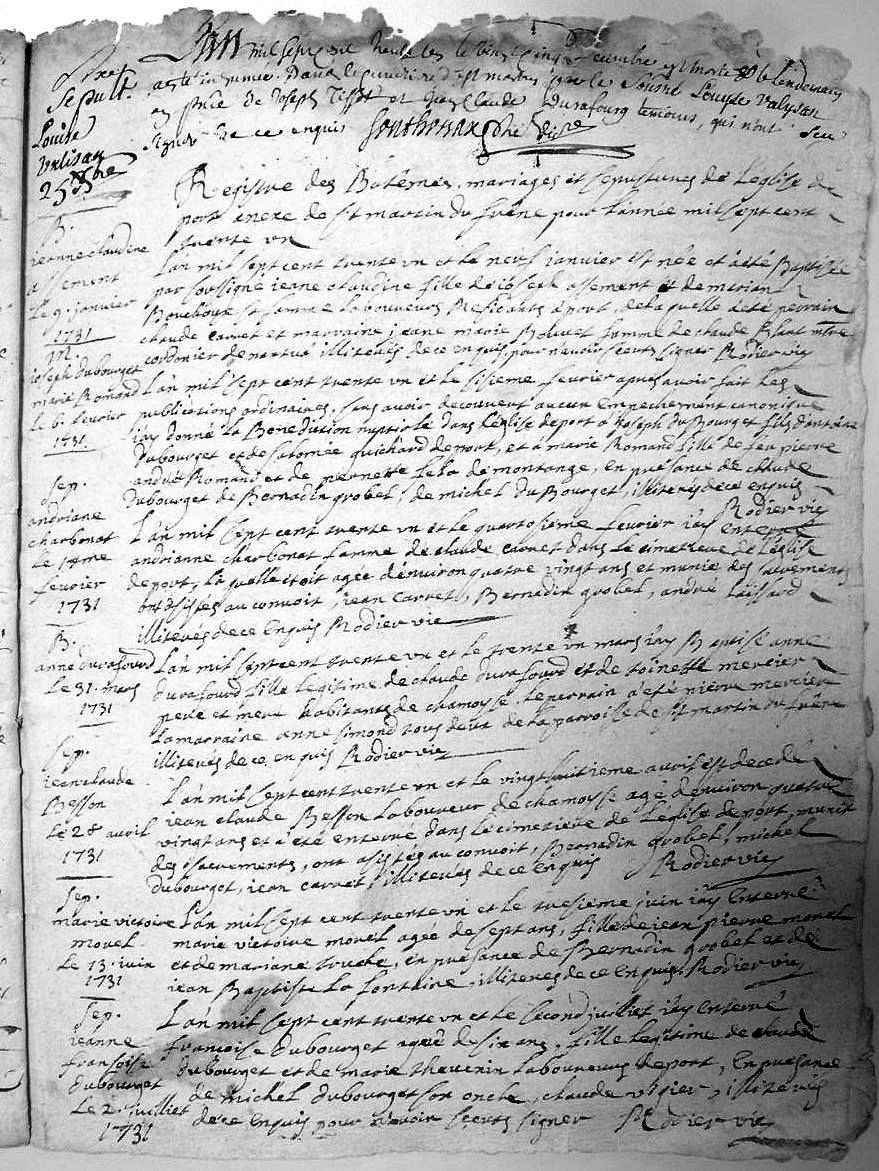 L'an mil sept cent trente le vingt cinq decembre est morte & le lendemain
a esté inhumée Dans le cimetiere d'est martin Louyse Valysan
en pnce De Joseph Tissot et Claude Durafourg temoins, qui n'ont sceu
signer De ce enquis Gonthonax
Sepult.
Louise
Valisan
25 Xbre
Registre des Batêmes, mariages et sepultures de Leglise de
port anexe de st martin du frêne pour l'année mil sept cent
trente un
B.
jeanne claudine
assement
le 9. janvier
1731
L'an mil sept cent trente un et le neuf janvier est née et a été Baptisée
par soussigné jeane claudine fille de joseph assement et de
sa famme Laboureurs Residants à port, de la quelle a été perrain
claude carret et marraine jeane marie Bolivet famme de claude
cordonier de nantua illiterés de ce enquis pour n'avoir sceut signer Rodier vic
M.
joseph dubourget
marie Romand
Le 6. fevrier
1731.
L'an mil sept cent trente un et le sisieme fevrier apres avoir fait les
publications ordinaires, sans avoir decouvert aucun empechement canonique
j'ay donné la Benediction nuptiale dans l'église de port à Joseph du Bourget fils d'antoine
dubourget et de salomée quichard de port, et à marie Romand fille de feu pierre
andré Romand et de pernette de montange, en presance de claude
dubourget de Bernadin grobel, de michel du Bourget, illiterés de ce enquis
Rodier vic
Sep.
andriane
charbonat
Le 14me
fevrier
1731
L'an mil sept cent trente un et le quatorsieme fevrier j'ay enterré
andrianne charbonat famme de claude carret dans le cimetiere de l'église
de port, la quelle étoit agée d'environ quatre vingt ans et munie des sacrements
ont asistés au convoit, jean carret, Bernadin grobel, andré
illiterés de ce enquis Rodier vic
B.
anne durafourd
Le 31. mars
1731
L'an mil sept cent trente un et le trente un mars j'ay Baptisé anne
durafourd fille legitime de claude durafourd et de toinette mercier
pere et mere habitants de chamoise, le parrain a été pierre mercier
la marraine anne simond tous deux de la parroise de st martin du frêne
illiterés de ce enquis Rodier vic
Sep.
jean claude
Besson
le 28 avril
1731
L'an mil sept cent trente un et le vingt huitieme avril est decedé
jean claude Besson Laboureur de chamoyse agé d'environ quatre
vingt ans et a été enterré dans le cimetiere de l'eglise de port, munit
des sacrements, ont asistés au convoit, Bernadin grobel, michel
dubourget, jean carret, illiterés de ce enquis Rodier vic
Sep.
marie victoire
morel
Le 13. juin
1731
L'an mil sept cent trente un et le tresieme juin j'ay enterré
marie victoire morel agée de sept ans, fille de jean pierre morel
et de mariane truche, en presance de Bernadin grobel et de
jean Baptiste la fontaine, illiterés de ce enquis Rodier vic
Sep.
jeanne
françoise
dubourget
Le 2. juilliet
1731
L'an mil sept cent trente un et le second juilliet j'ay enterré
françoise dubourget agée de six ans, fille legitime de claude
dubourget et de marie thevenin laboureurs de port, en presance
de michel dubourget son oncle, claude vigier, illiterés
de ce enquis pour n'avoir sceuts signer Rodier vic